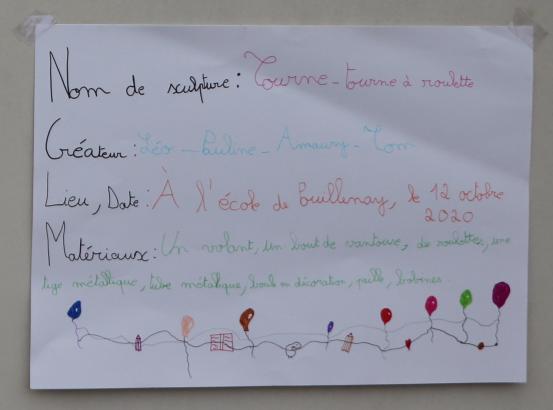 Nom de sculpture: Tourne-tourne à roulette
Créateur: Léo - Pauline - Amaury - Tom
Lieu, Date: À l'école de Buillenay, le 12 octobre
2020
Matériaux: Un volant, un bout de vantouse, de roulettes, une
tige métallique, tube métallique, boule en décoration, bobines.